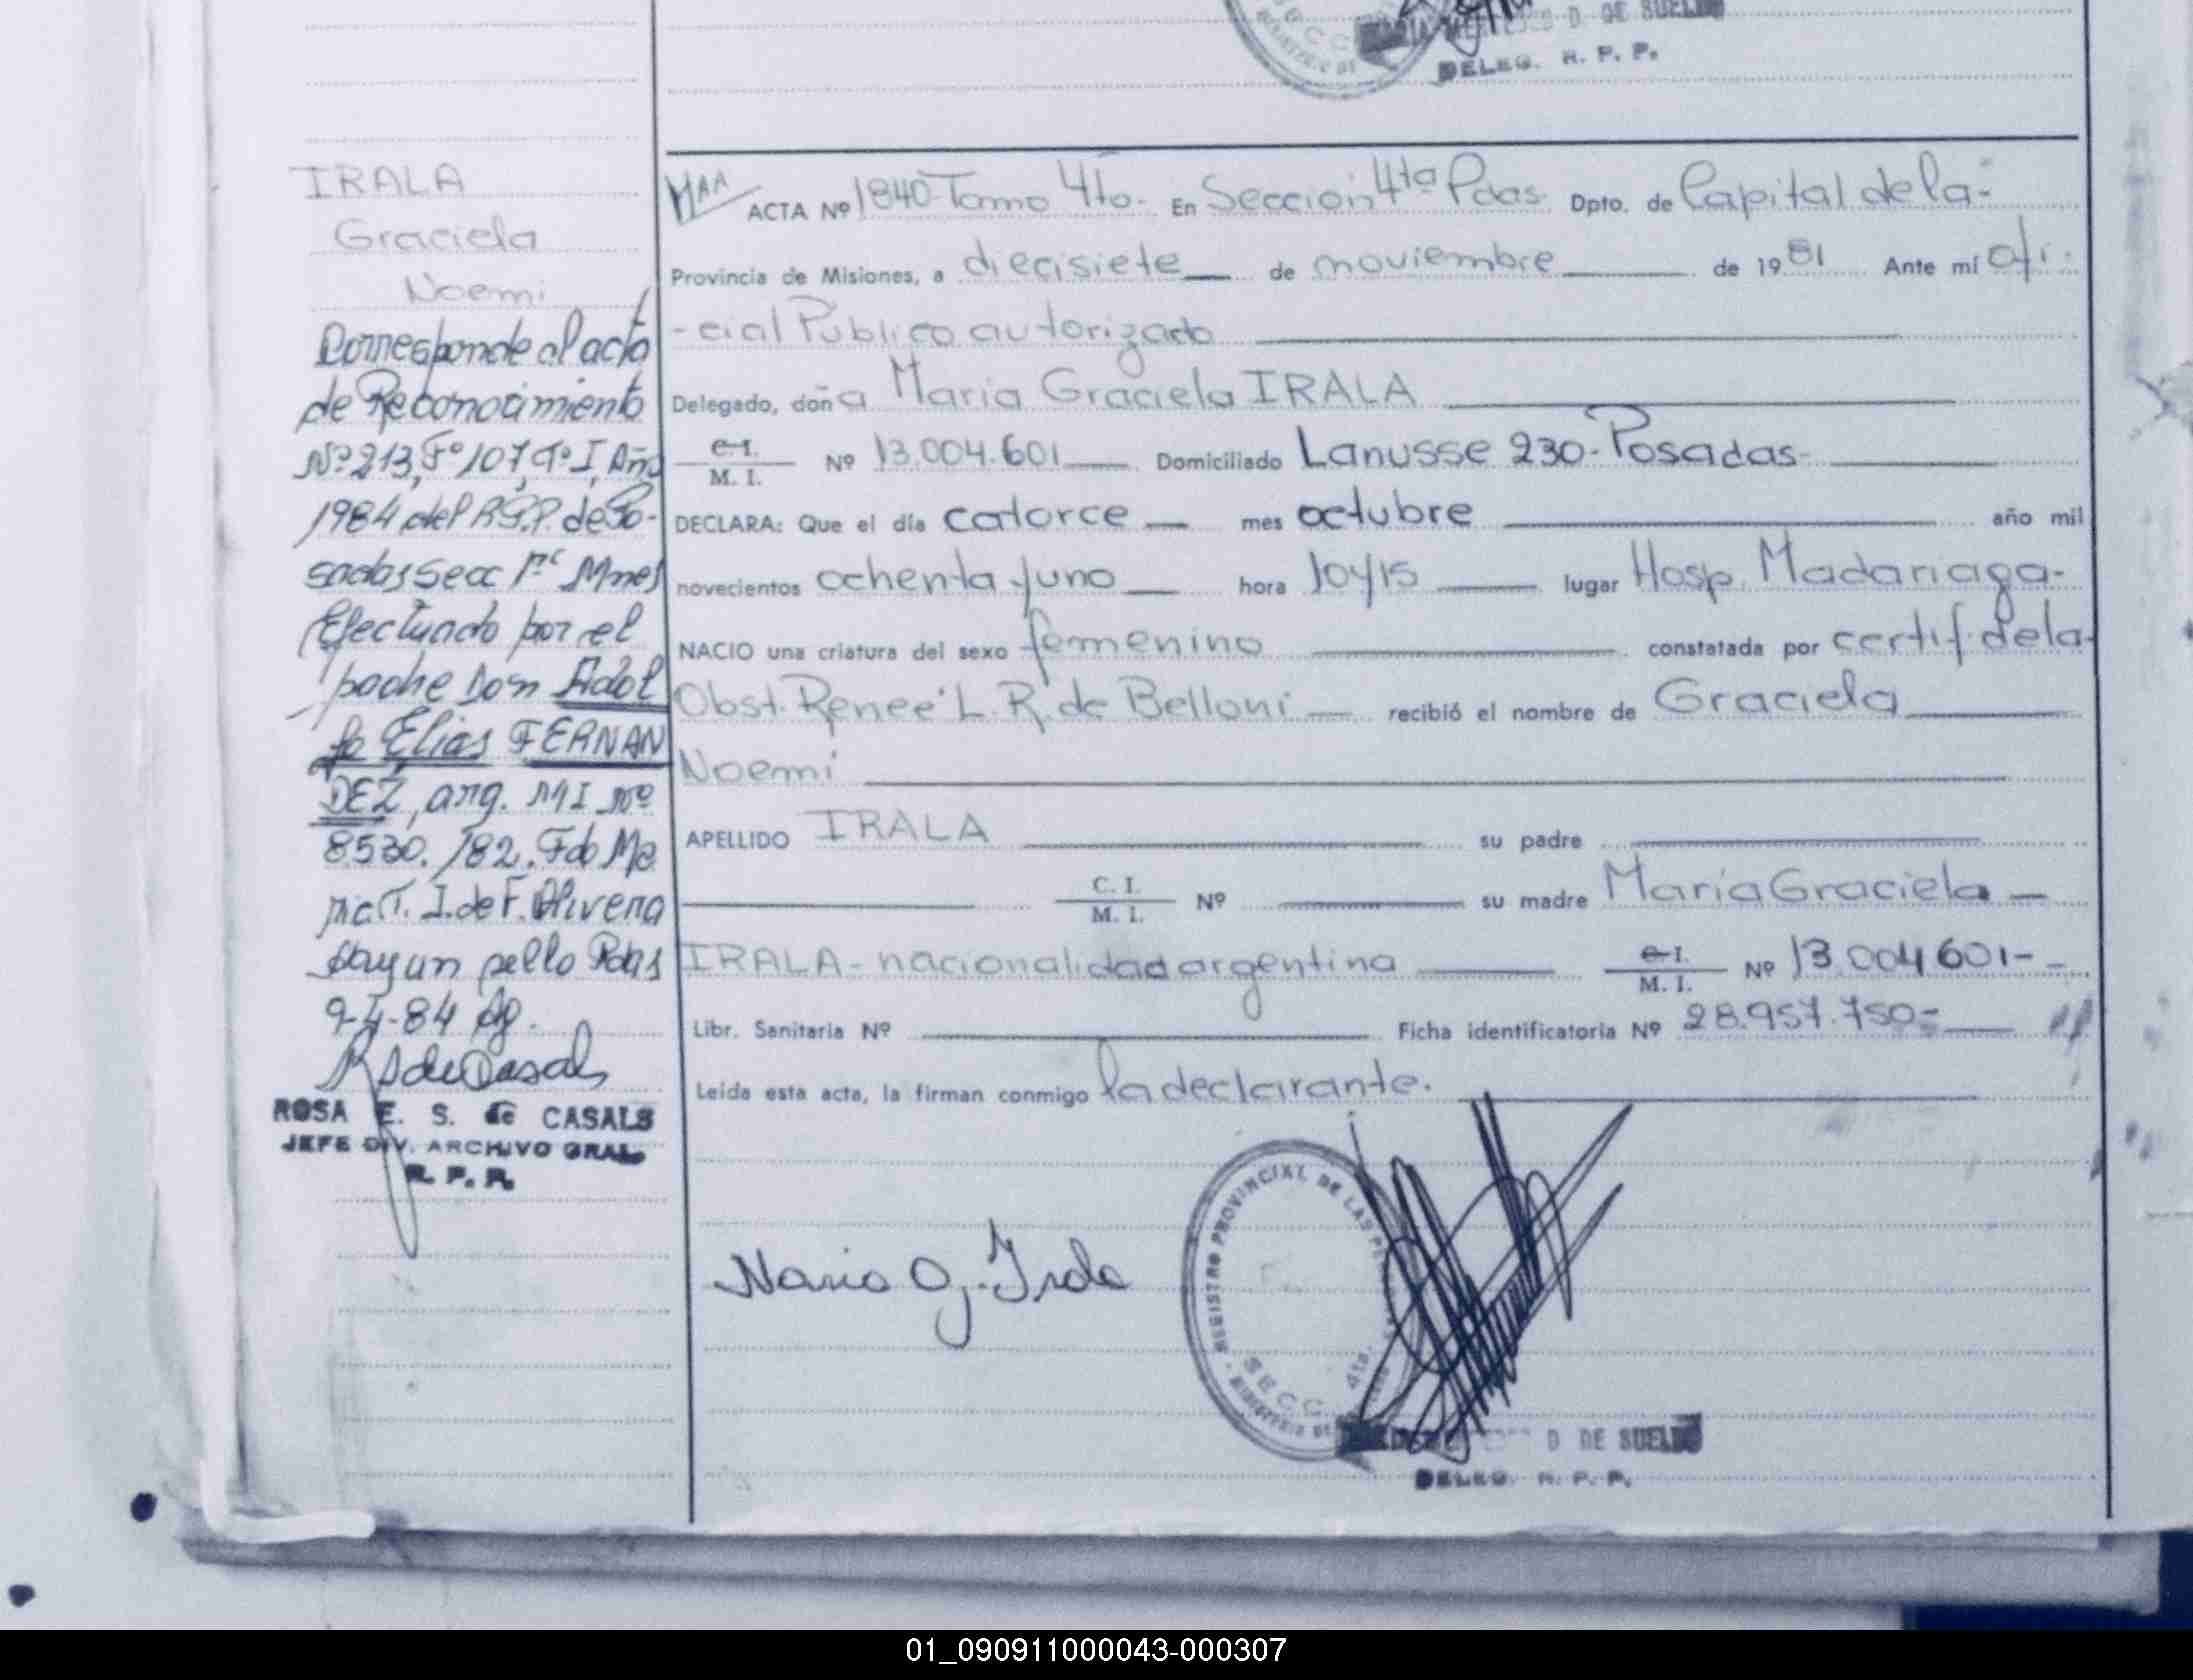 D. DE SUELDO
DELEG. R. P. P.
IRALA
Graciela
Noemi
Corresponde al acta
de Reconocimiento
Nº 213, Fº 107, Tº I, Año
1984 del R.P.P. de Po-
sadas Secc 1ª Mnes
Efectuado por el
padre Don Adol
fo Elias FERNAN
DEZ, arg. MI Nº
8530.182. Fdo Ma
T. I. de F. Olivera
Hay un sello Pdas
9-I-84
ROSA E. S. de CASALS
JEFE DIV. ARCHIVO GRAL.
R. P. P.
ACTA Nº 1840-Tomo 4to. En Sección 4ta Pdas. Dpto. de Capital de la-
Provincia de Misiones, a diecisiete de noviembre de 1981 Ante mí ofi-
-cial Público autorizado
Delegado, doña Maria Graciela IRALA
C. I. / M. I. Nº 13.004.601 Domiciliado Lanusse 230-Posadas-
DECLARA: Que el día catorce mes octubre año mil
novecientos ochenta y uno hora 10y15 lugar Hosp. Madariaga-
NACIO una criatura del sexo femenino constatada por certif. de la-
Obst. Renee L. R. de Belloni recibió el nombre de Graciela
Noemi
APELLIDO IRALA su padre
C. I. / M. I. Nº su madre María Graciela
IRALA - nacionalidad argentina C. I. / M. I. Nº 13.004.601-
Libr. Sanitaria Nº Ficha identificatoria Nº 28.957.750-
Leída esta acta, la firman conmigo la declarante.
Maria G. Irala
REGISTRO PROVINCIAL DE LAS
SECC. 4ta.
MINISTERIO DE
D. DE SUELDO
DELEG. R. P. P.
01_090911000043-000307